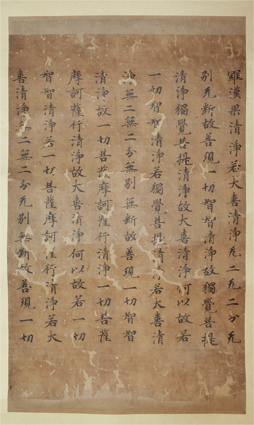 羅漢果清淨若大喜清淨无二无二分无
別无斷故善現一切智智清淨故獨覺菩提
清淨獨覺菩提清淨故大喜清淨何以故若
一切智智清淨若獨覺菩提清淨若大喜清
淨無二無二分無別無斷故善現一切智智
清淨故一切菩薩摩訶薩行清淨一切菩薩
摩訶薩行清淨故大喜清淨何以故若一切
智智清淨若一切菩薩摩訶薩行清淨若大
喜清淨無二無二分无別無斷故善現一切